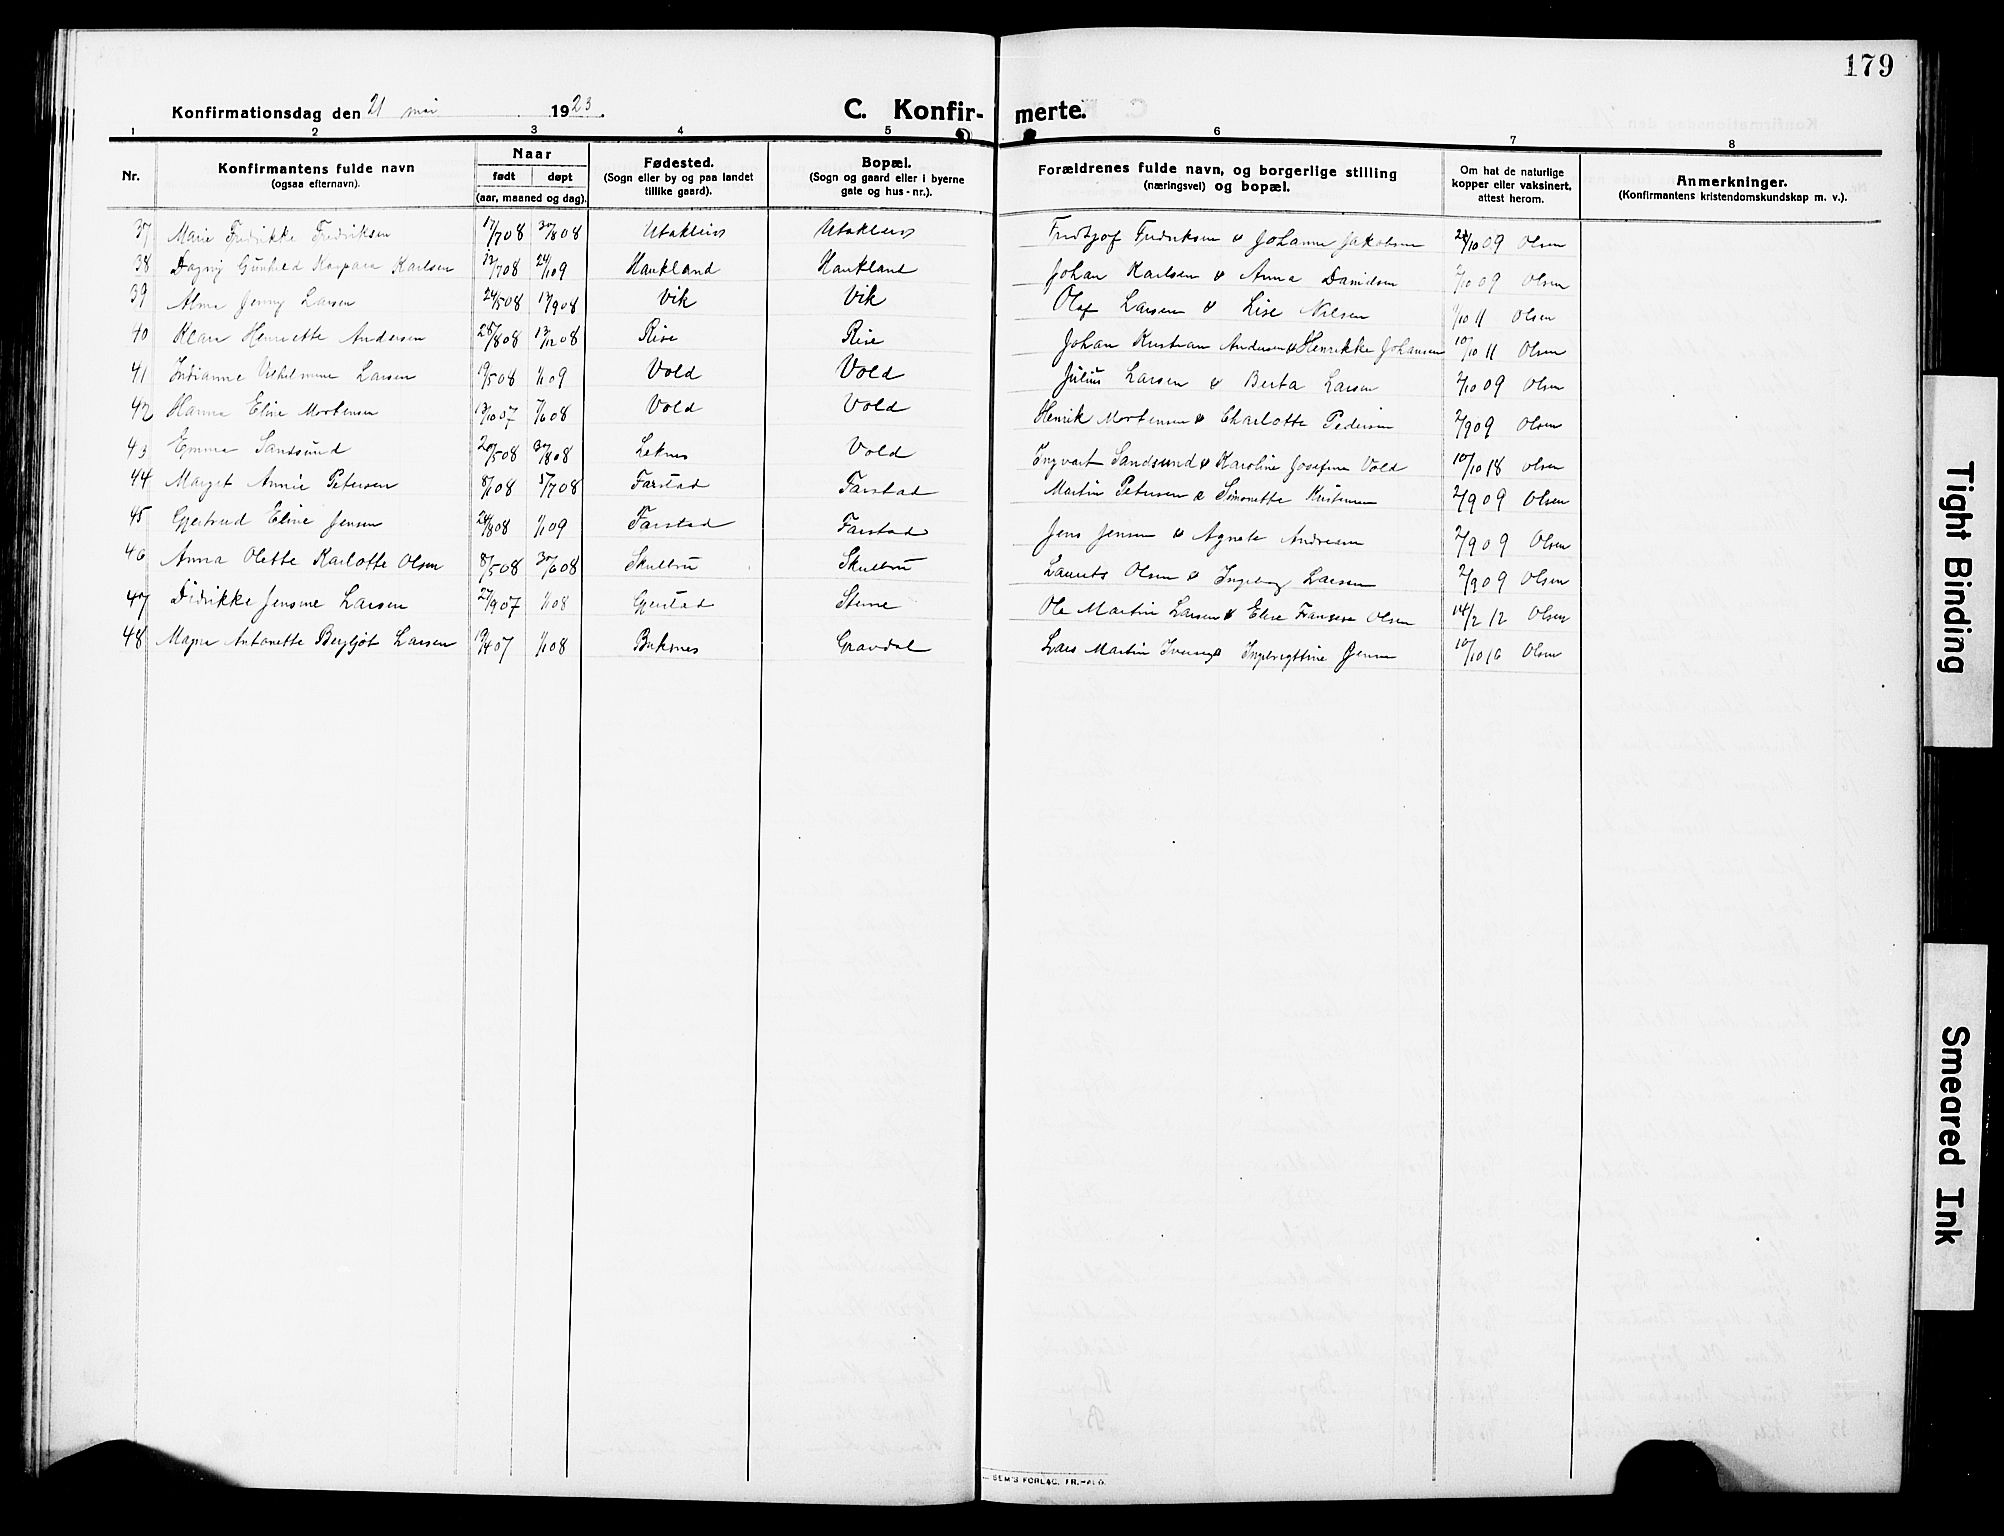 179
Konfirmationsdag den 21 mai 1923. C. Konfirmerte.
1 2 3 4 5 6 7 8
Nr. Konfirmantens fulde navn (ogsaa efternavn). Naar født døpt (aar, maaned og dag). Fødested. (Sogn eller by og paa landet tillike gaard). Bopæl. (Sogn og gaard eller i byerne gate og hus-nr.). Forældrenes fulde navn, og borgerlige stilling (næringsvei) og bopæl. Om hat de naturlige kopper eller vaksinert, attest herom. Anmerkninger. (Konfirmantens kristendomskundskap m. v.).
37 Marie Fredrikke Fredriksen 17/7 08 30/8 08 Utakleiv Utakleiv Fridtjof Fredriksen & Johanna Jakobsen /10 09 Olsen
38 Dagny Gunhild Kaspara Karlsen 12/7 08 24/1 09 Haukland Haukland Johan Karlsen & Anna Danielsen 2/10 09 Olsen
39 Alma Jenny Larsen 24/5 08 13/9 08 Vik Vik Olaf Larsen & Lise Nilsen /10 11 Olsen
40 Klara Henriette Andersen 28/8 08 13/12 08 Reise Reise Johan Kristian Andersen & Henrikke Johansen 10/10 11 Olsen
41 Indianne Vilhelmine Larsen 19/5 08 1/1 09 Vold Vold Julius Larsen & Berta Larsen 2/10 09 Olsen
42 Hanna Eline Mortensen 13/10 07 7/6 08 Vold Vold Henrik Mortensen & Charlotte Pedersen 2/9 09 Olsen
43 Emma Sandsund 20/5 08 30/8 08 Leknes Vold Ingvart Sandsund & Karoline Josefine Vold 10/10 18 Olsen
44 Marget Annie Petersen 8/1 08 5/7 08 Farstad Farstad Martin Petersen & Simonette Kristensen 2/9 09 Olsen
45 Gjertrud Eline Jensen 24/8 08 1/1 09 Farstad Farstad Jens Jensen & Agnete Andreasen 2/9 09 Olsen
46 Anna Olette Karlotte Olsen 8/5 08 30/6 08 Skulbru Skulbru Laurits Olsen & Ingeborg Larsen 2/9 09 Olsen
47 Didrikke Jensine Larsen 27/9 07 1/1 08 Gjerstad Steine Ole Martin Larsen & Elise Olsen 14/2 12 Olsen
48 Magna Antonette Bergljot Larsen 19/4 07 1/1 08 Buksnes Gravdal Lars Martin Iversen & Ingebrigtine Jensen 10/10 16 Olsen
SEM'S FORLAG, FR.HALD.
Tight Binding
Smeared Ink